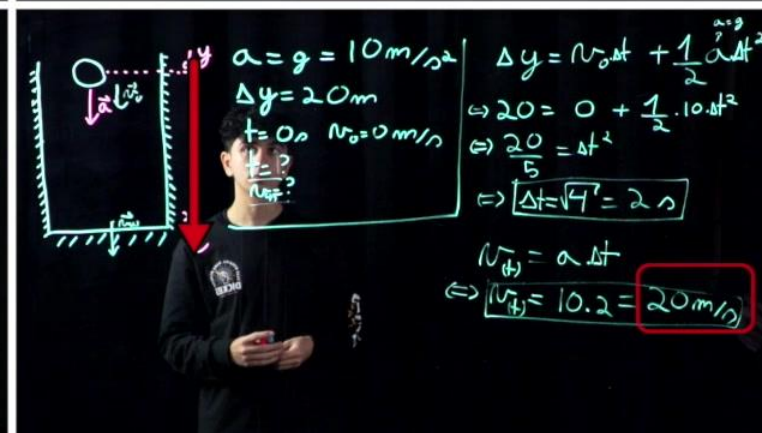 y
a = g = 10m/s²
Δy = 20m
t = 0s v₀ = 0 m/s
t = ?
a⃗
v⃗₀
a = g
Δy = v₀.Δt + 1/2 a Δt²
⇔ 20 = 0 + 1/2 .10.Δt²
⇔ 20/5 = Δt²
⇔ Δt = √4 = 2 s
v(t) = a.Δt
⇔ v(t) = 10.2 = 20m/s